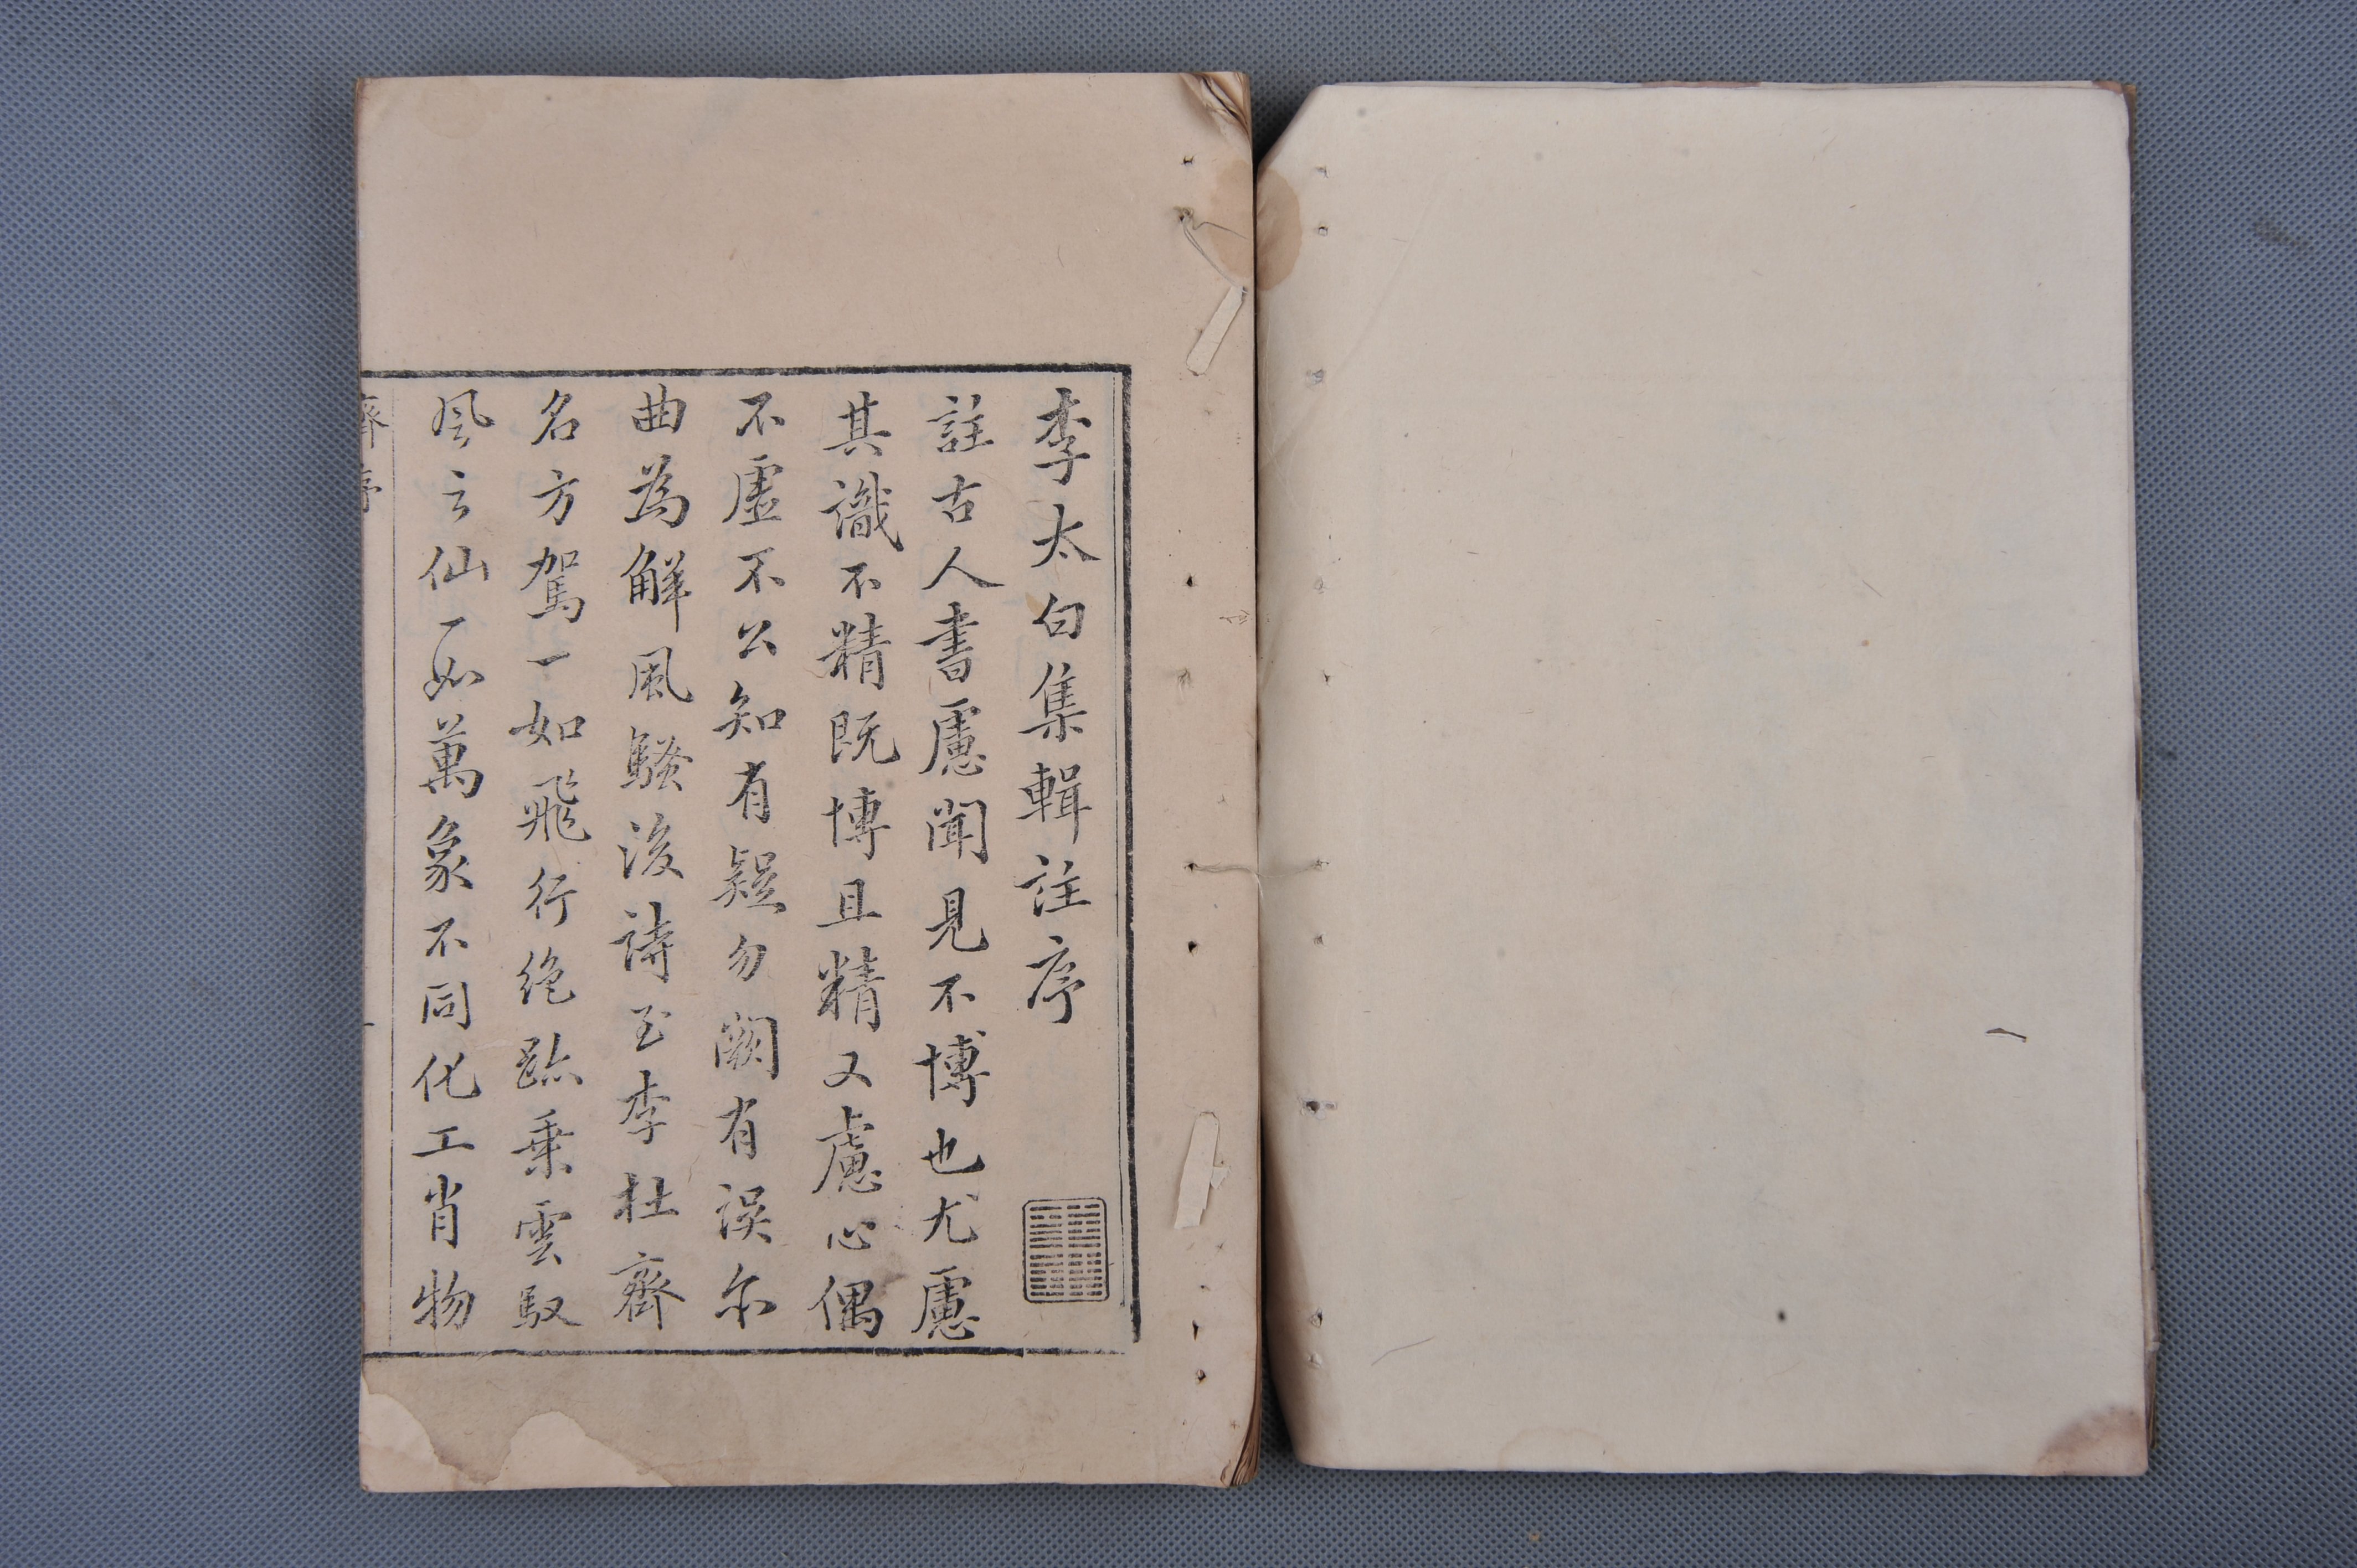 李太白集輯註序
註古人書慮聞見不博也尤慮
其識不精既博且精又慮心偶
不虛不公知有疑勿闕有误尓
曲為解風騷後詩至李杜齊
名方駕一如飛行絶跡乗雲馭
風之仙一如萬象不同化工肖物
齊序